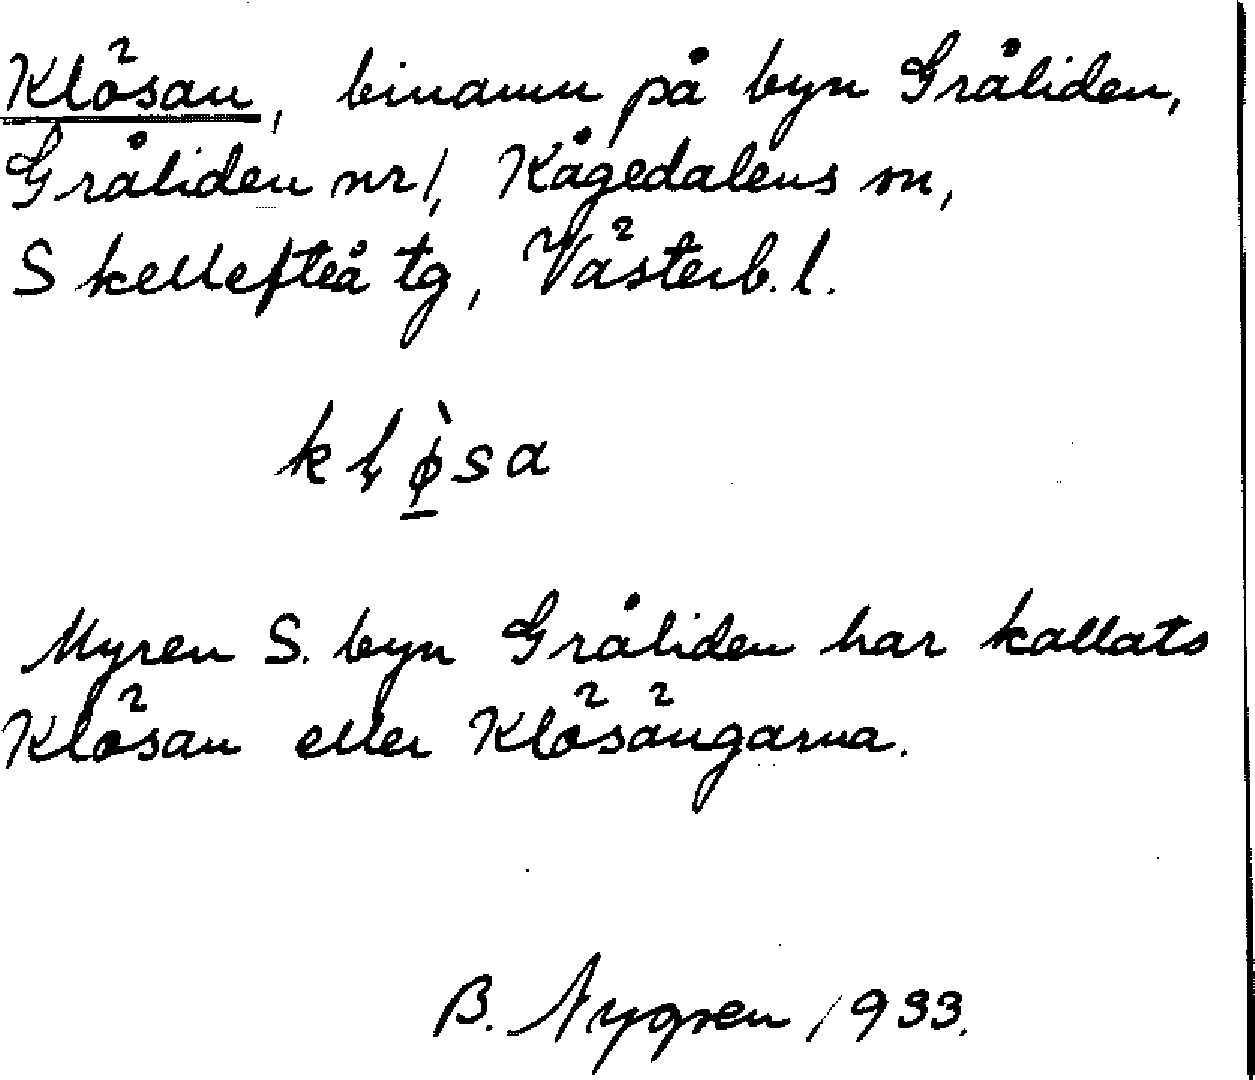 Klösan, binamn på byn Gråliden,
Gråliden nr 1, Kågedalens sn,
Skellefteå tg, Västerb. l.
kḷø̠̀sa
Myren S. byn Gråliden har kallats
Klösan eller Klösängarna.
B. Nygren 1933.